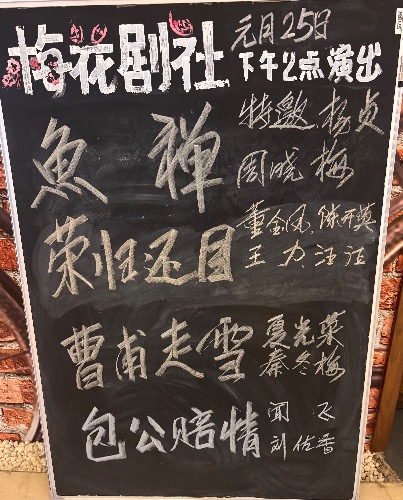 梅花剧社 元月25日
下午2点演出
魚禅 特邀、杨贞
周晓梅
荣归还目 董金凤、陈开英
王力、汪洁
曹甫走雪 夏光菜
秦冬梅
包公赔情 闻飞
刘佐香